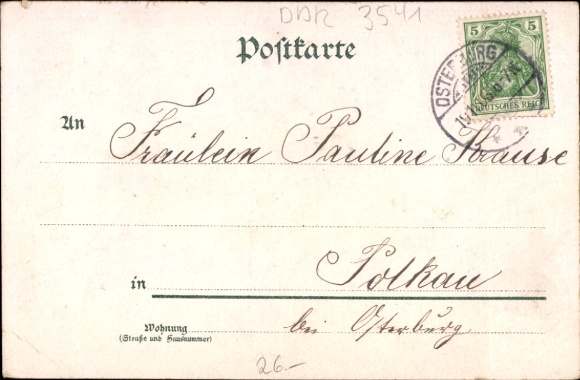 DDR 3541
Postkarte
5 5
DEUTSCHES REICH
OSTERBURG
An Fräulein Pauline Krause
in Polkau
bei Osterburg
Wohnung
(Straße und Hausnummer)
26.-